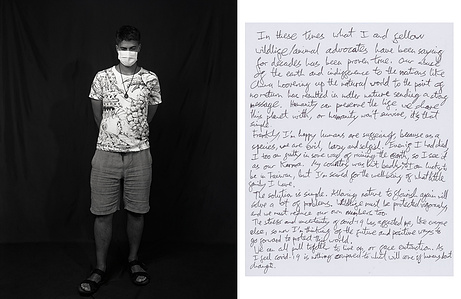 In these times what I and fellow
wildlife/animal advocates have been saying
for decades has been proven true. Our abuse
of the earth and indifference to the nations like
hoovering up the natural world to the point of
no return has resulted in mother nature sending a stop
message. Humanity can preserve the life we share
this planet with, or humanity won't survive, it's that
simple.
Frankly I'm happy humans are suffering because as a
species, we are evil, lazy and selfish. Even if I had died,
I too am guilty in some way of ruining the earth, so I see it
as our Karma. My country was hit badly,
but I'm scared for the wellbeing of what little
family I have.
The solution is simple. Allowing nature to flourish again will
solve a lot of problems. Wildlife must be protected vigorously
and we must reduce our own numbers too.
The stress and uncertainty of covid-19 has affected me, like everyone
else, so now I'm thinking of the future and positive ways to
go forward to protect this world.
We can all pull together to live on, or face extinction. As
I feel covid-19 is nothing compared to what will come if
change.